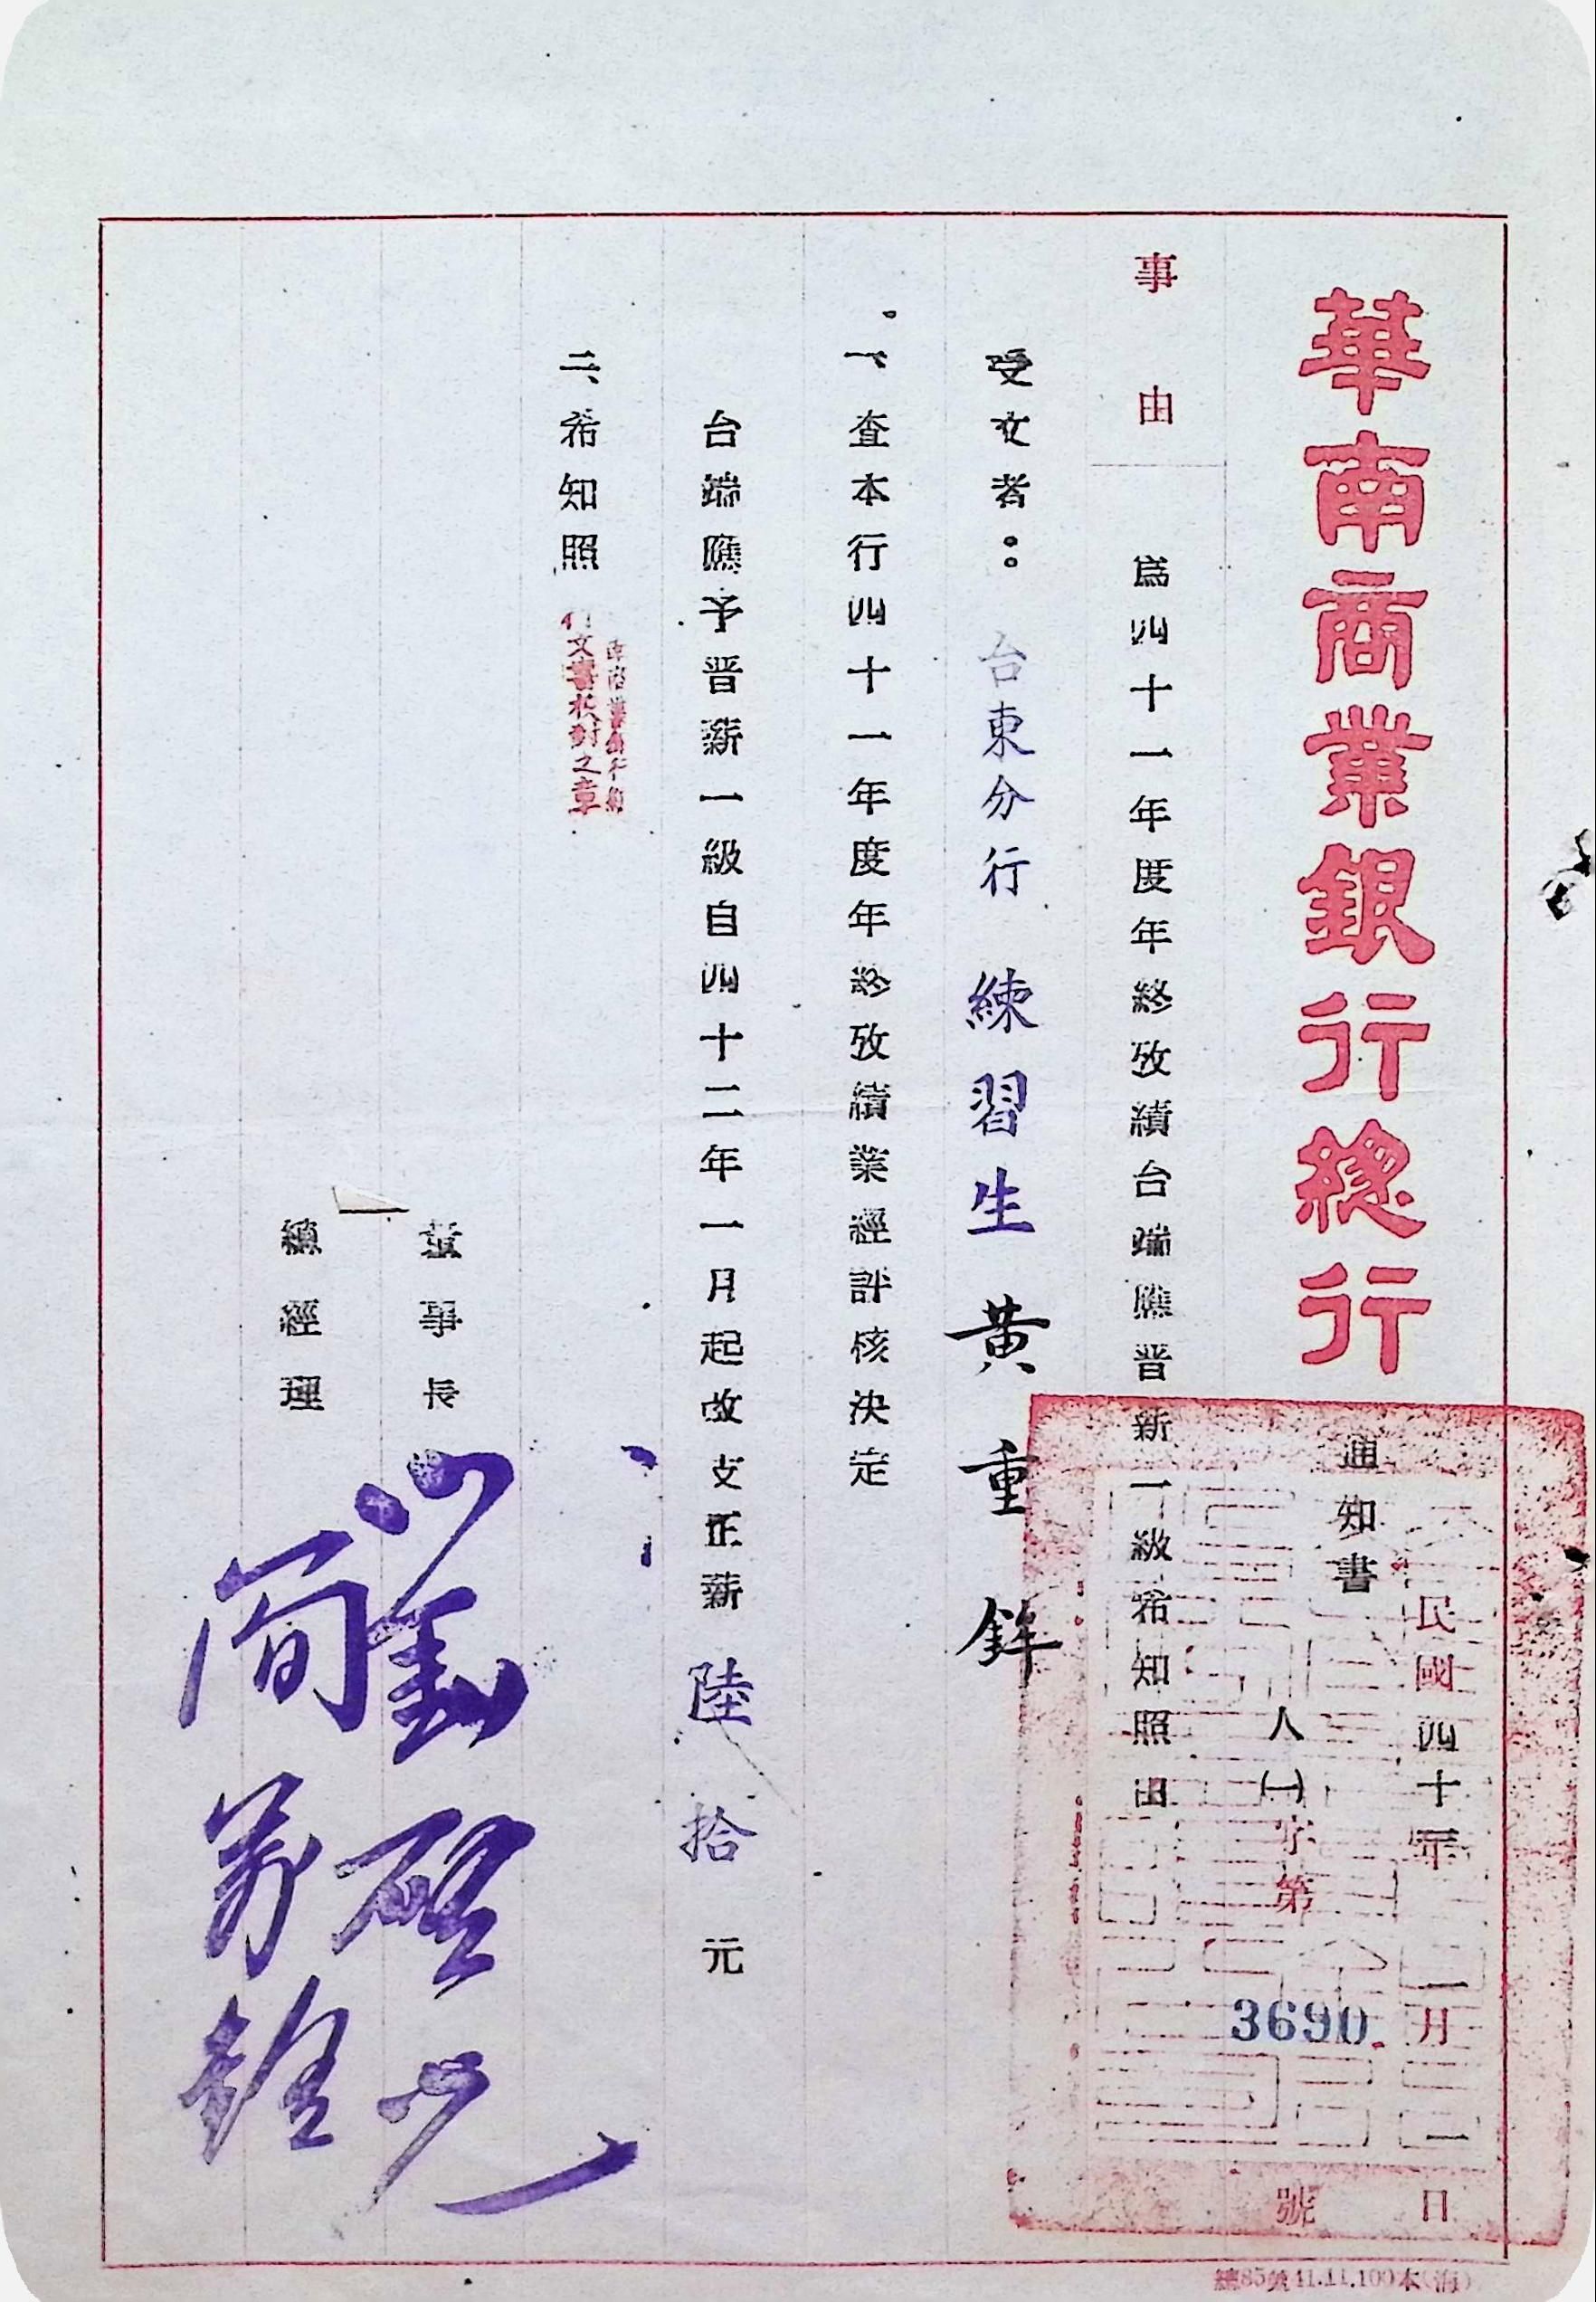 華南商業銀行總行
通知書
民國四十二年一月一日
人㈠字第3690號
事由
為四十一年度年終攷績台端應晋薪一級希知照由
受文者：台東分行 練習生 黃重鉾
一、查本行四十一年度年終攷績業經評核決定
台端應予晋薪一級自四十二年一月起改支正薪陸拾元
二、希知照
行文書校對之章
董事長 劉啓光
總經理 簡萬銓
總85號41.11.100本(海)